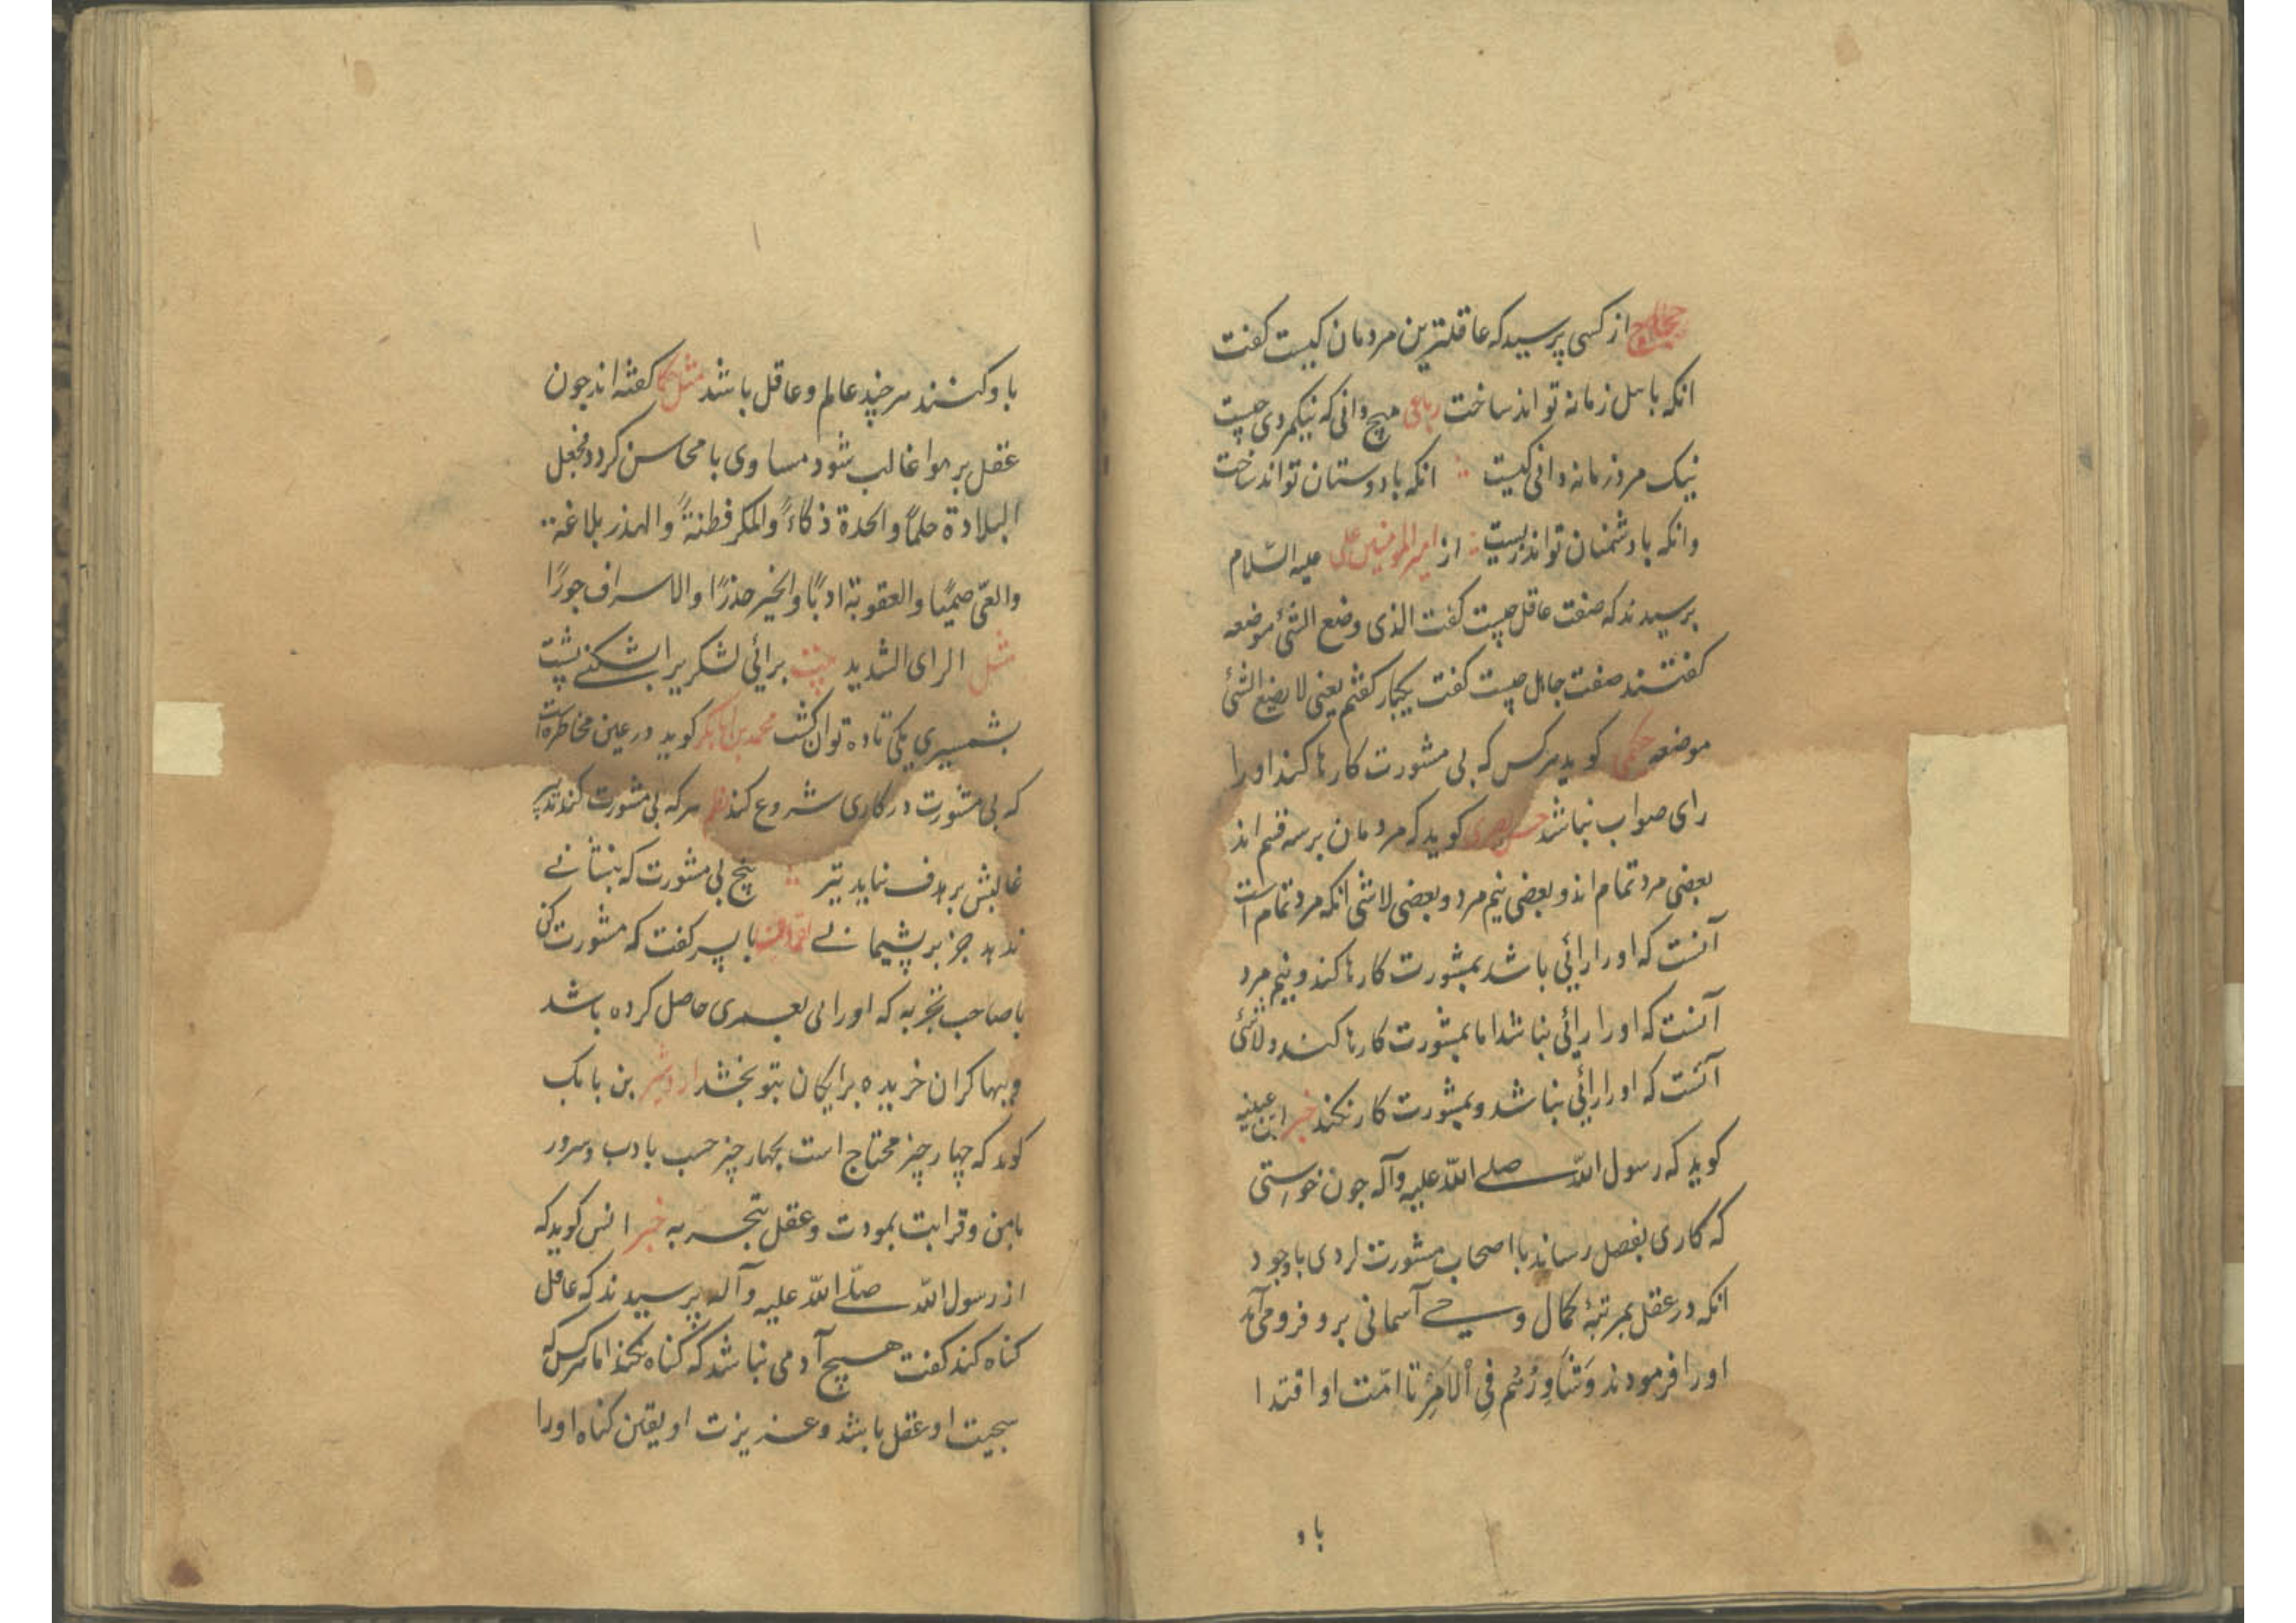 حجاج از کسی پرسید که عاقلترین مردمان کیست کفت
انکه با اهل زمانه تواند ساخت رباعی هیچ دانی که نیکمردی چیست
نیک مرد زمانه دانی کیست انکه با دوستان تواند ساخت
وانکه با دشمنان تواند زیست از امیرالمومنین علی علیه السّلام
پرسیدند که صفت عاقل چیست کفت الذی وضع الشئ موضعه
کفتند صفت جاهل چیست کفت یکبار کفتم یعنی لا یضع الشئ
موضعه حکیمی کوید هرکس که بی مشورت کارها کند او را
رای صواب نباشد حسن بصری کوید که مردمان بر سه قسم اند
بعضی مرد تمام اند و بعضی نیم مرد و بعضی لاشی انکه مرد تمام است
آنست که او را رائی باشد بمشورت کارها کند و نیم مرد
آنست که او را رائی نباشد اما بمشورت کارها کند و لاشئ
آنست که او را رائی نباشد و بمشورت کار نکند خبر ابن عیینه
کوید که رسول الله صلی الله علیه وآله جون خواستی
که کاری بفصل رساند با اصحاب مشورت کردی باوجود
انکه در عقل بمرتبهٔ کمال و وحی آسمانی برو فرو می آمد
او را فرمودند وَشَاوِرْهُم فِی الْاَمْرِ تا امّت او اقتدا
باو
باو کنند هرچند عالم و عاقل باشد مثل کما کفته اند جون
عقل بر هوا غالب شود مساوی با محاسن کردد فجعل
البلادة حلماً والحدة ذکاءً والمکر فطنةً والهذر بلاغة
والعیّ صمتًا والعقوبة ادبًا والخبر حذرًا والاسراف جورًا
مثل الرای الشدید برائی لشکری را بشکنی پشت
بشمشیری یکی تا ده توان کشت محمد بن ابابکر کوید در عین مخاطره است
که بی مشورت در کاری شروع کند نظم هرکه بی مشورت کند تدبیر
غالبش بر هدف نیاید تیر بیخ بی مشورت که بنشانی
ندهد جز بر پشیمانی لقمان با پسر کفت که مشورت کن
با صاحب تجربه که او رای بعمری حاصل کرده باشد
و ببها کران خریده برایکان بتو بخشد اردشیر بن بابک
کوید که چهار چیز محتاج است بچهار چیز حسب بادب وسرور
بامن و قرابت بمودت و عقل بتجربه خبر انس کوید که
از رسول الله صلی الله علیه وآله پرسیدند که عاقل
کناه کند کفت هیچ آدمی نباشد که کناه نکند اما هرکس که
سجیت او عقل باشد و غریزت او یقین کناه او را